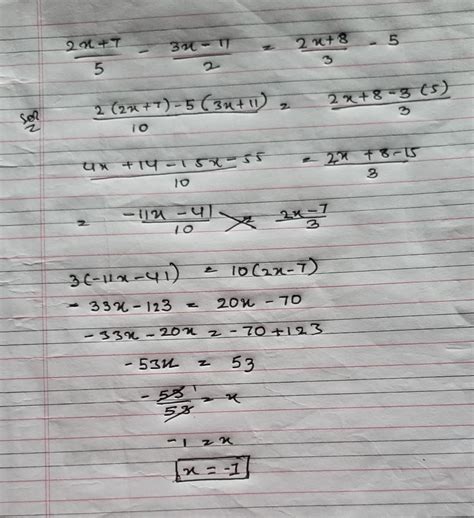 (2x+7)/5 - (3x-11)/2 = (2x+8)/3 - 5
Sol² (2(2x+7)-5(3x+11))/10 = (2x+8-3(5))/3
(4x+14-15x-55)/10 = (2x+8-15)/3
= (-11x-41)/10 = (2x-7)/3
3(-11x-41) = 10(2x-7)
-33x-123 = 20x-70
-33x-20x = -70+123
-53x = 53
-53/53 ¹ = x
-1 = x
x = -1